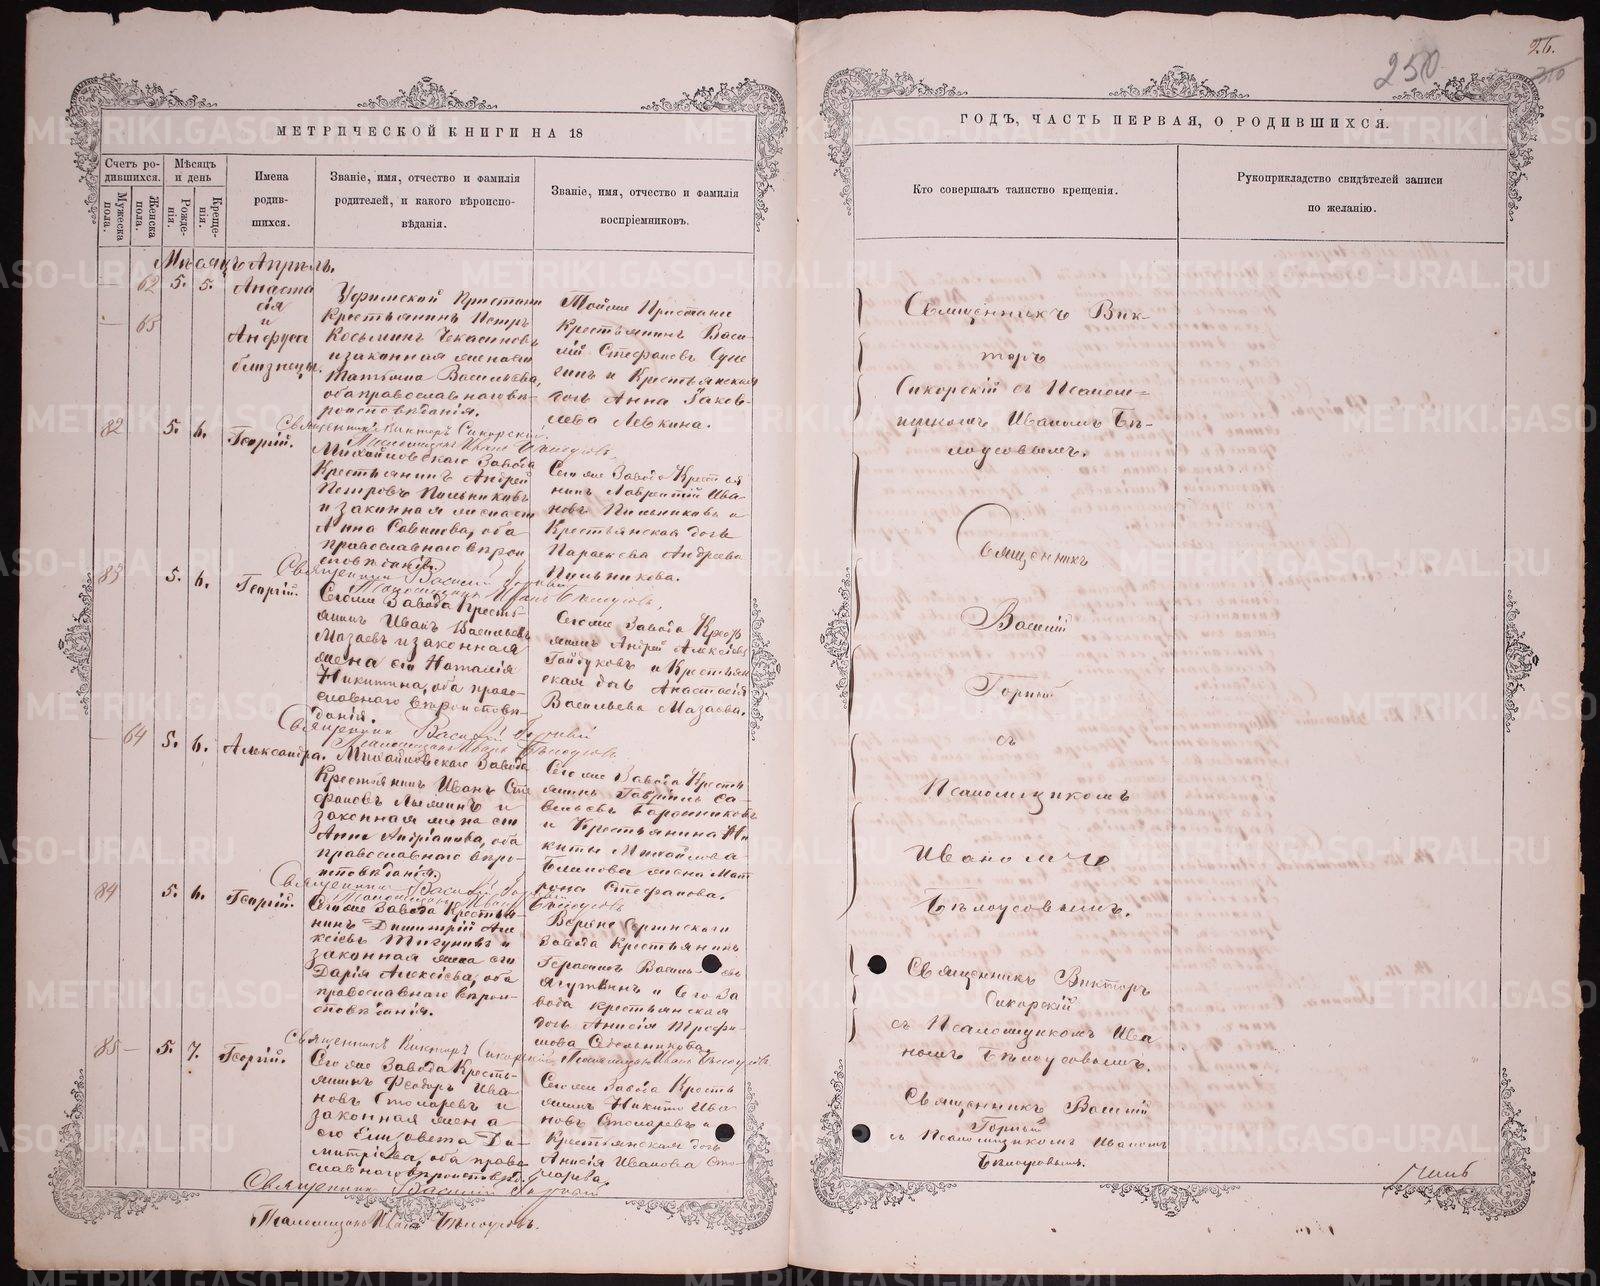 26.
250
250
МЕТРИЧЕСКОЙ КНИГИ НА 18
Счетъ ро-
дившихся.
Мѣсяцъ
и день
Мужеска
пола.
Женска
пола.
Рожде-
нія.
Креще-
нія.
Имена
родив-
шихся.
Званіе, имя, отчество и фамилія
родителей, и какого вѣроиспо-
вѣданія.
Званіе, имя, отчество и фамилія
воспріемниковъ.
Мѣсяцъ Апрѣль.
— 62 5. 5. Анаста
сія
и
— 63
Анфуса
близнецы.
Уфимской Пристани
Крестьянинъ Петръ
Косьминъ Чекасиновъ
и законная жена его
Татьяна Васильева,
оба православнаго вѣ-
роисповѣданія.
Тойже Пристани
Крестьянинъ Васи-
лій Стефановъ
и Крестьянская
дочь Анна Іаков-
лева Левкина.
Священникъ Викторъ Сикорскій.
Псаломщикъ Иванъ Бѣлоусовъ.
82 5. 6. Георгій.
Михайловскаго Завода
Крестьянинъ Андрей
Петровъ Пильниковъ
и законная жена его
Анна Савинова, оба
православнаго вѣрои
сповѣданія.
Сегоже Завода Крестья
нинъ Лаврентій Ива-
новъ Пильниковъ и
Крестьянская дочь
Параскева Андреева
Пильникова.
Священникъ Василій Горный
Псаломщикъ Иванъ Бѣлоусовъ.
83 5. 6. Георгій.
Сегоже Завода Кресть-
янинъ Иванъ Васильевъ
Мазаевъ и законная
жена его Наталія
Никитина, оба право-
славнаго вѣроисповѣ-
данія.
Сегоже Завода Кресть
янинъ Андрей Алексѣевъ
Гайдуковъ и Крестьян
ская дочь Анастасія
Васильева Мазаева.
Священникъ Василій Горный
Псаломщикъ Иванъ Бѣлоусовъ.
— 64 5. 6. Александра.
Михайловскаго Завода
Крестьянинъ Иванъ Сте
фановъ Лыминъ и
законная жена его
Анна Андріанова, оба
православнаго вѣро-
исповѣданія.
Сегоже Завода Кресть
янинъ Гавріилъ Са-
вельевъ Баранниковъ
и Крестьянина Ни
киты Михайлова
Блинова жена Мат
рона Стефанова.
Священникъ Василій Горный
Псаломщикъ Иванъ Бѣлоусовъ
84 5. 6. Георгій.
Сегоже Завода Крестья-
нинъ Димитрій Але
ксѣевъ Тигуновъ и
законная жена его
Дарія Алексѣева, оба
православнаго вѣрои-
сповѣданія.
Верхне Сергинскаго
Завода Крестьянинъ
Герасимъ Василь евъ
и Сего За
вода крестьянская
дочь Анисія Трофи-
мова Стольникова.
Священникъ Викторъ Сикорскій Псаломщикъ Иванъ Бѣлоусовъ
85 — 5. 7. Георгій.
Сегоже Завода Кресть-
янинъ Феодоръ Ива
новъ Столаревъ и
законная жена
его Елисавета Ди-
митріева, оба право
славнаго вѣроисповѣд.
Сегоже Завода Кресть
янинъ Никита Ива-
новъ Столаревъ и
Крестьянская дочь
Анисія Иванова Сто-
ларева.
Священникъ Василій Горный
Псаломщикъ Иванъ Бѣлоусовъ.
ГОДЪ, ЧАСТЬ ПЕРВАЯ, О РОДИВШИХСЯ.
Кто совершалъ таинство крещенія.
Рукоприкладство свидѣтелей записи
по желанію.
Священникъ Вик-
торъ
Сикорскій съ Псалом=
щикомъ Иваномъ Бѣ-
лоусовымъ.
Священникъ
Василій
Горный
съ
Псаломщикомъ
Иваномъ
Бѣлоусовымъ.
Священникъ Викторъ
Сикорскій
съ Псаломщикомъ Ива
номъ Бѣлоусовымъ.
Священникъ Василій
Горный
съ Псаломщикомъ Иваномъ
Бѣлоусовымъ.
METRIKI.GASO-URAL.RU